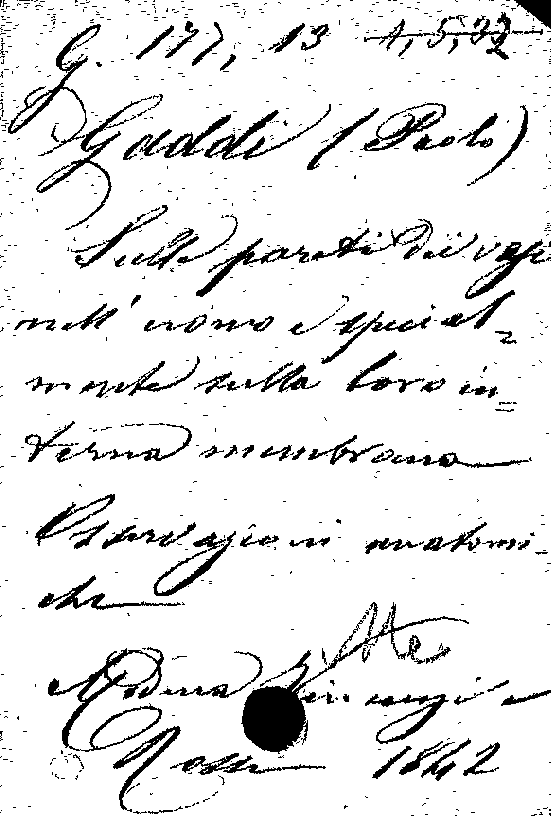 G. 177, 13 4, 5, 32
Gaddi (Paolo)
Sulle pareti dei vasi
nell' uomo e special-
mente sulla loro in=
terna membrana
Osservazioni anatomi-
che
Modena Vincenzi e
Rossi 1842